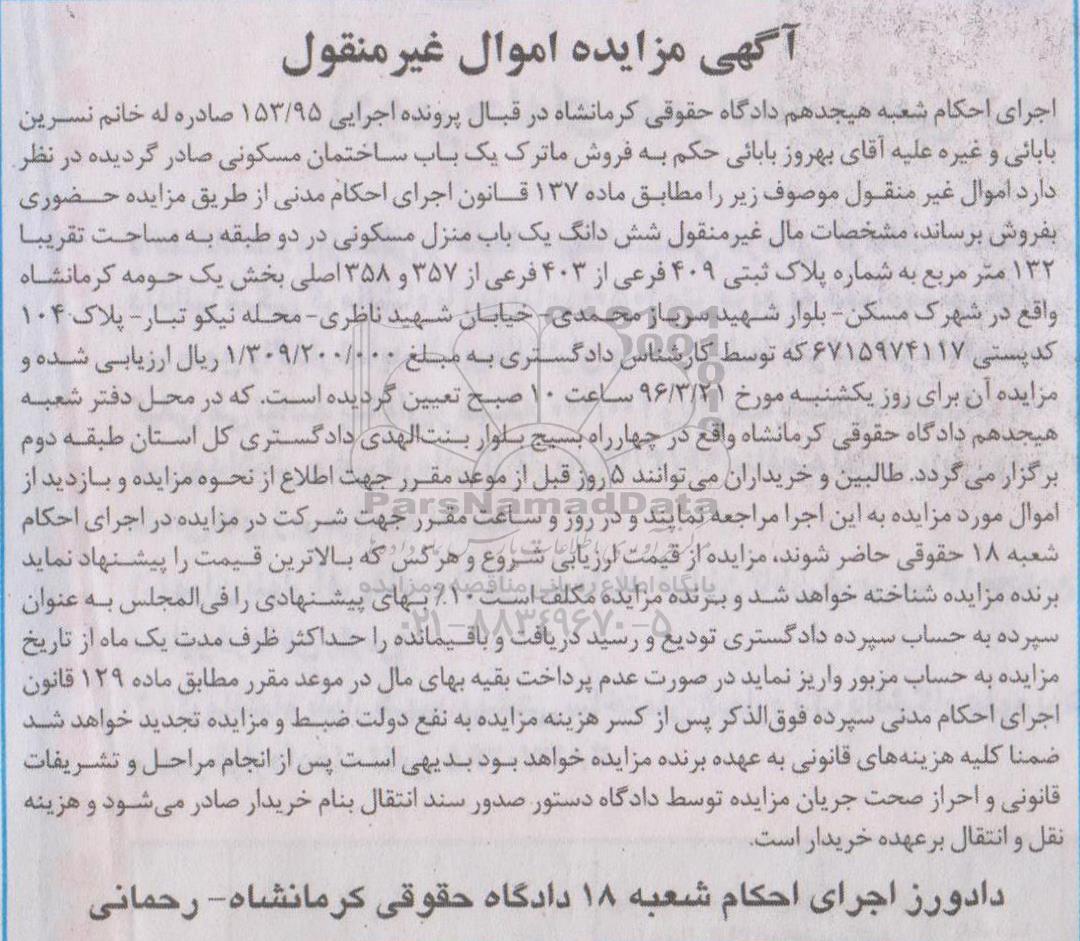 آگهی مزایده اموال غیرمنقول
اجرای احکام شعبه هیجدهم دادگاه حقوقی کرمانشاه در قبال پرونده اجرایی ۱۵۳/۹۵ صادره له خانم نسرین
بابائی و غیره علیه آقای بهروز بابائی حکم به فروش ماترک یک باب ساختمان مسکونی صادر گردیده در نظر
دارد اموال غیر منقول موصوف زیر را مطابق ماده ۱۳۷ قانون اجرای احکام مدنی از طریق مزایده حضوری
بفروش برساند، مشخصات مال غیرمنقول شش دانگ یک باب منزل مسکونی در دو طبقه به مساحت تقریبا
۱۳۲ متر مربع به شماره پلاک ثبتی ۴۰۹ فرعی از ۴۰۳ فرعی از ۳۵۷ و ۳۵۸ اصلی بخش یک حومه کرمانشاه
واقع در شهرک مسکن- بلوار شهید سرباز محمدی- خیابان شهید ناظری- محله نیکو تبار- پلاک ۱۰۴
کدپستی ۶۷۱۵۹۷۴۱۱۷ که توسط کارشناس دادگستری به مبلغ ۱/۳۰۹/۲۰۰/۰۰۰ ریال ارزیابی شده و
مزایده آن برای روز یکشنبه مورخ ۹۶/۳/۲۱ ساعت ۱۰ صبح تعیین گردیده است. که در محل دفتر شعبه
هیجدهم دادگاه حقوقی کرمانشاه واقع در چهارراه بسیج بلوار بنت‌الهدی دادگستری کل استان طبقه دوم
برگزار می‌گردد. طالبین و خریداران می‌توانند ۵ روز قبل از موعد مقرر جهت اطلاع از نحوه مزایده و بازدید از
اموال مورد مزایده به این اجرا مراجعه نمایند و در روز و ساعت مقرر جهت شرکت در مزایده در اجرای احکام
شعبه ۱۸ حقوقی حاضر شوند، مزایده از قیمت ارزیابی شروع و هرکس که بالاترین قیمت را پیشنهاد نماید
برنده مزایده شناخته خواهد شد و برنده مزایده مکلف است ۱۰٪ بهای پیشنهادی را فی‌المجلس به عنوان
سپرده به حساب سپرده دادگستری تودیع و رسید دریافت و باقیمانده را حداکثر ظرف مدت یک ماه از تاریخ
مزایده به حساب مزبور واریز نماید در صورت عدم پرداخت بقیه بهای مال در موعد مقرر مطابق ماده ۱۲۹ قانون
اجرای احکام مدنی سپرده فوق‌الذکر پس از کسر هزینه مزایده به نفع دولت ضبط و مزایده تجدید خواهد شد
ضمنا کلیه هزینه‌های قانونی به عهده برنده مزایده خواهد بود بدیهی است پس از انجام مراحل و تشریفات
قانونی و احراز صحت جریان مزایده توسط دادگاه دستور صدور سند انتقال بنام خریدار صادر می‌شود و هزینه
نقل و انتقال برعهده خریدار است.
دادورز اجرای احکام شعبه ۱۸ دادگاه حقوقی کرمانشاه- رحمانی
ParsNamadData
پایگاه اطلاع رسانی مناقصه و مزایده
۰۲۱-۸۸۳۴۹۶۷۰-۵